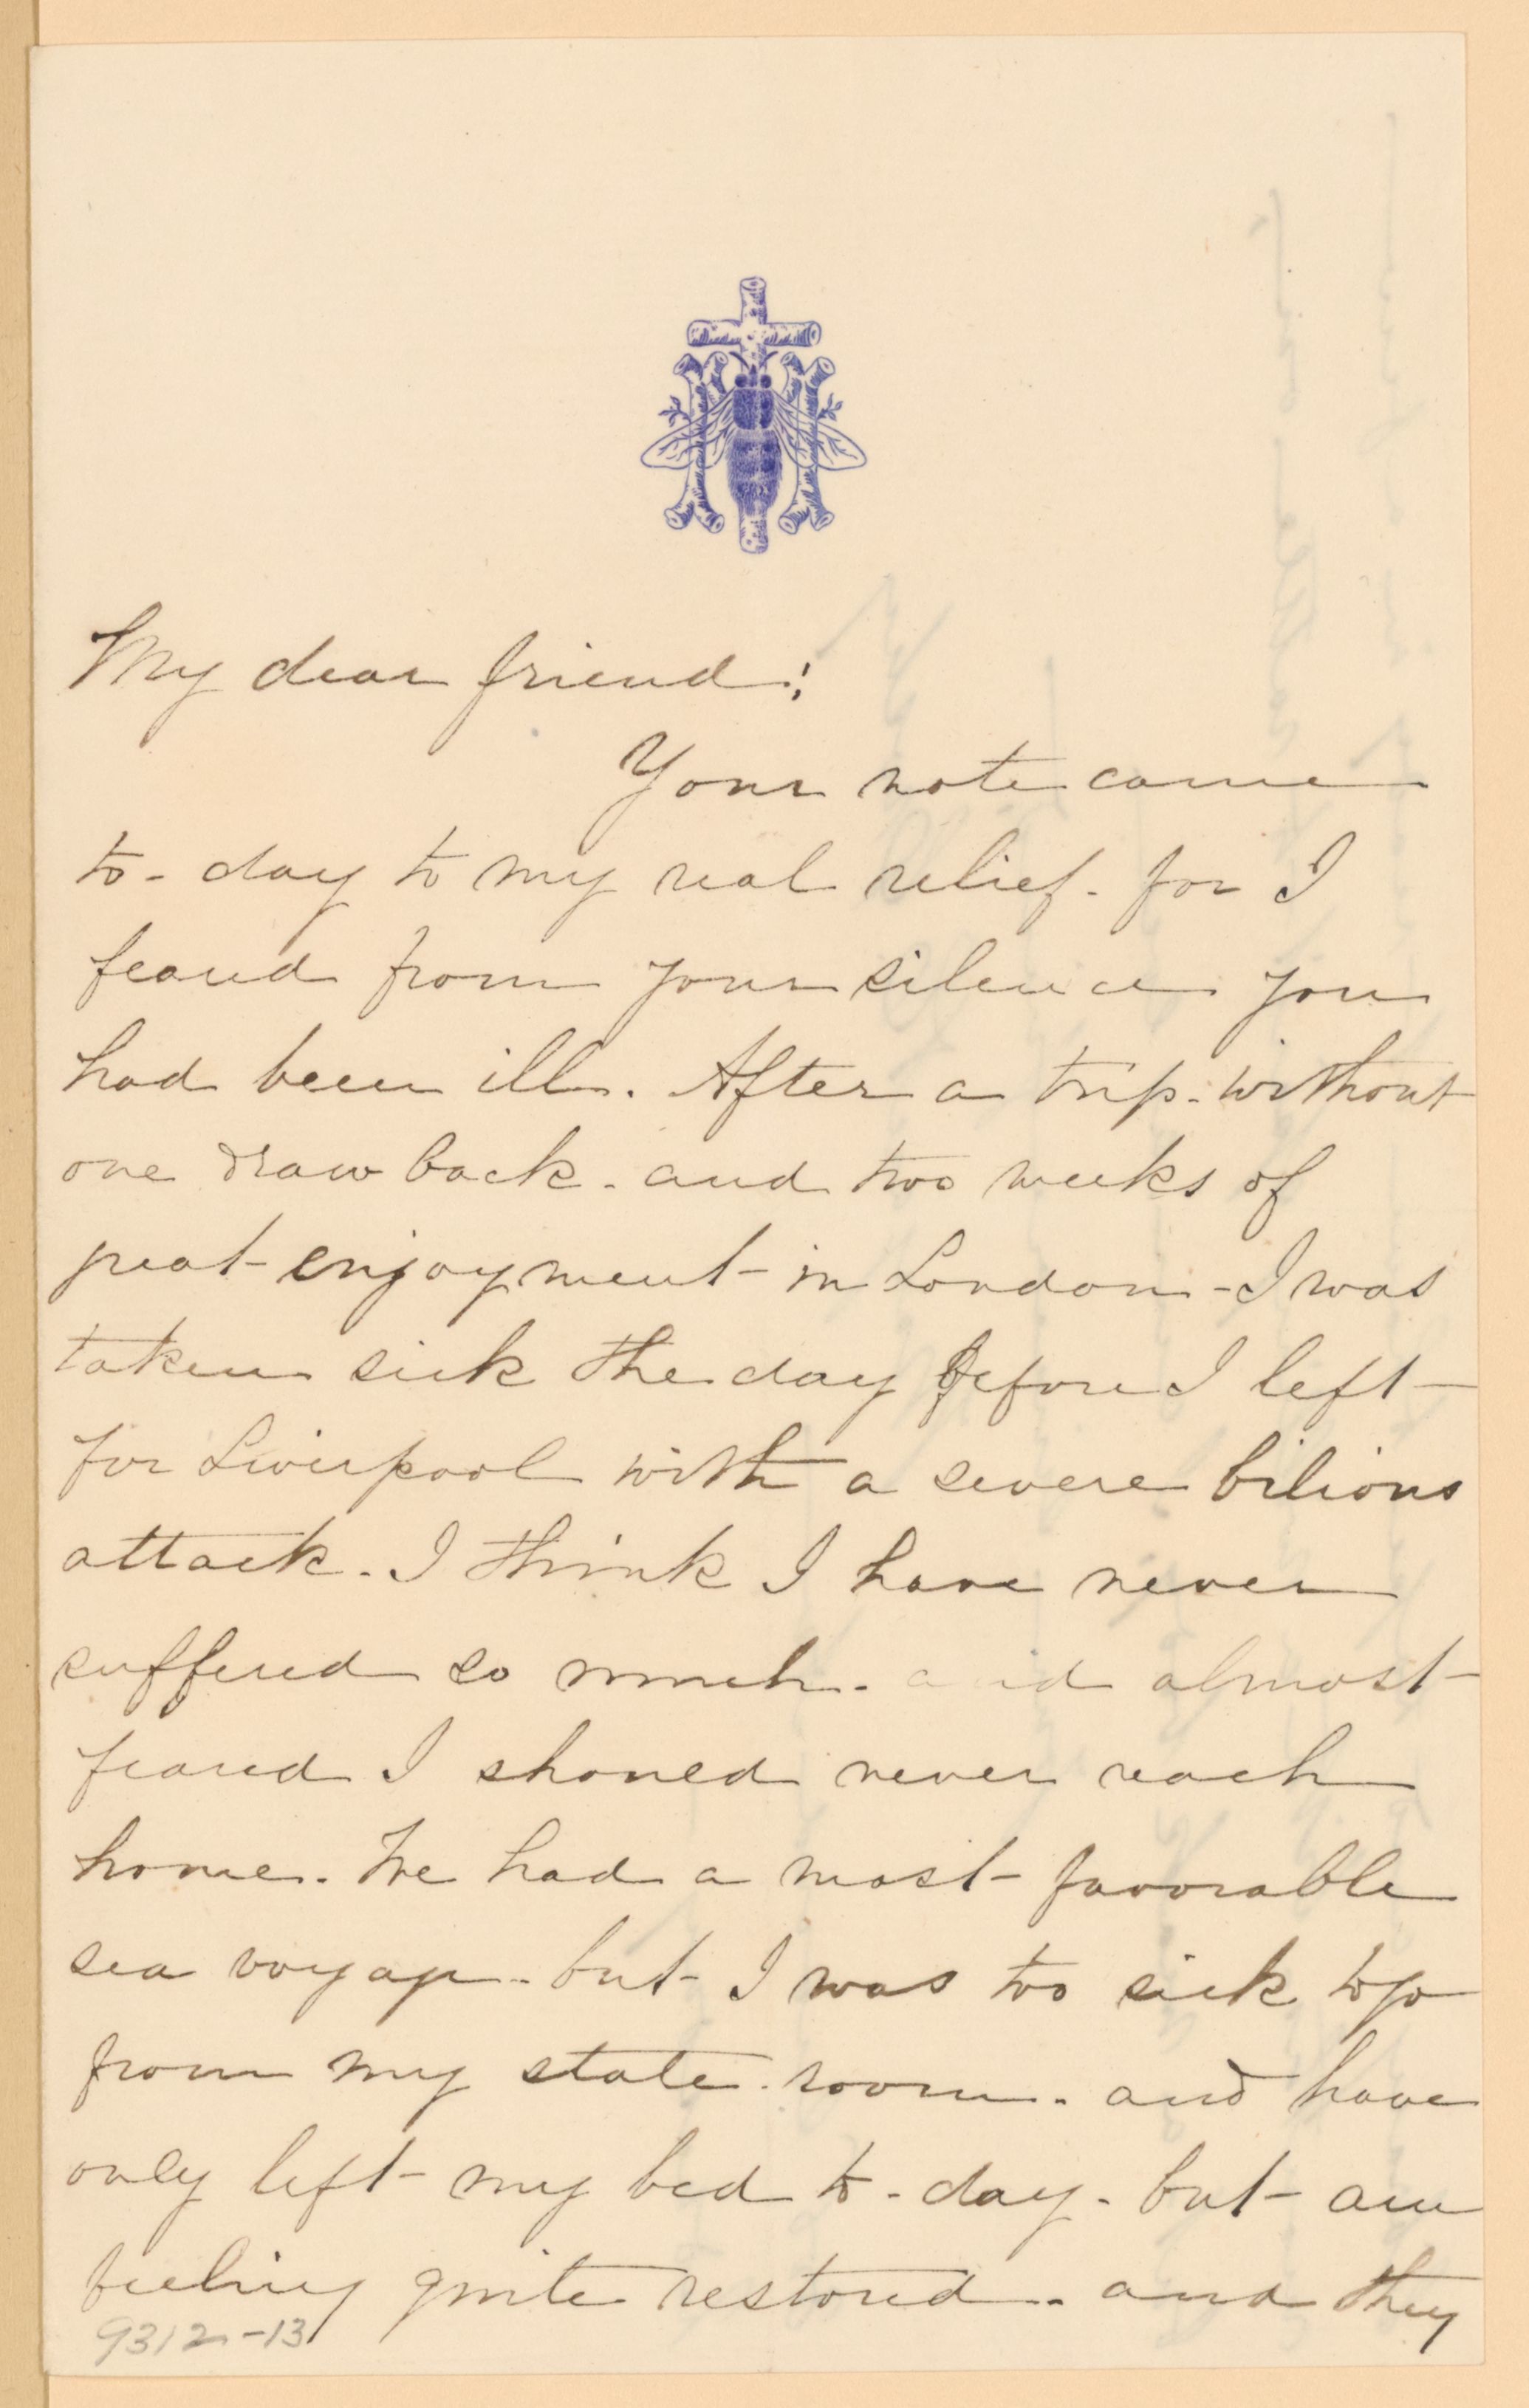 My dear friend:
Your note came
to-day to my real relief- for I
feared from your silence you
had been ill. After a trip- without
one draw back- and two weeks of
great enjoyment- in London- I was
taken sick the day before I left-
for Liverpool with a severe bilious
attack. I think I have never
suffered so much- and almost
feared I should never reach
home. We had a most favorable
sea voyage- but I was too sick to go
from my state-room- and have
only left my bed to-day- but am
feeling quite restored- and they
9312-13